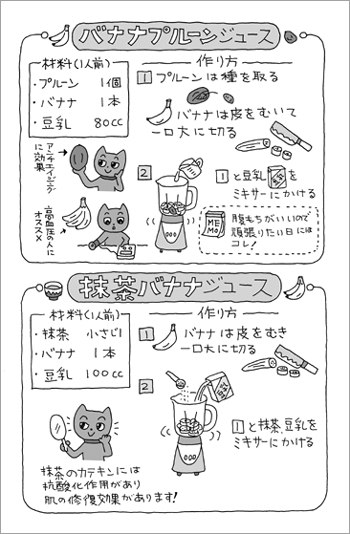 バナナプルーンジュース
材料(1人前)
・プルーン 1個
・バナナ 1本
・豆乳 80cc
アンチエイジング
に効果
高血圧の人に
オススメ
作り方
1 プルーンは種を取る
バナナは皮をむいて
一口大に切る
2
1と豆乳を
ミキサーにかける
MEMO
腹もちがいいので
頑張りたい日には
コレ!
抹茶バナナジュース
材料(1人前)
・抹茶 小さじ1
・バナナ 1本
・豆乳 100cc
抹茶のカテキンには
抗酸化作用があり
肌の修復効果があります!
作り方
1 バナナは皮をむき
一口大に切る
2
1と抹茶、豆乳を
ミキサーにかける